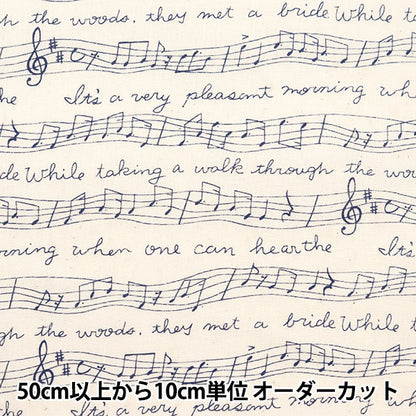 the woods. they met a bride While ta
the It's a very pleasant morning wh
de While taking a walk through the woo
rning when one can hear the It's
gh the woods. they met a bride While t
the It's a very pleasant morning w
50cm以上から10cm単位 オーダーカット